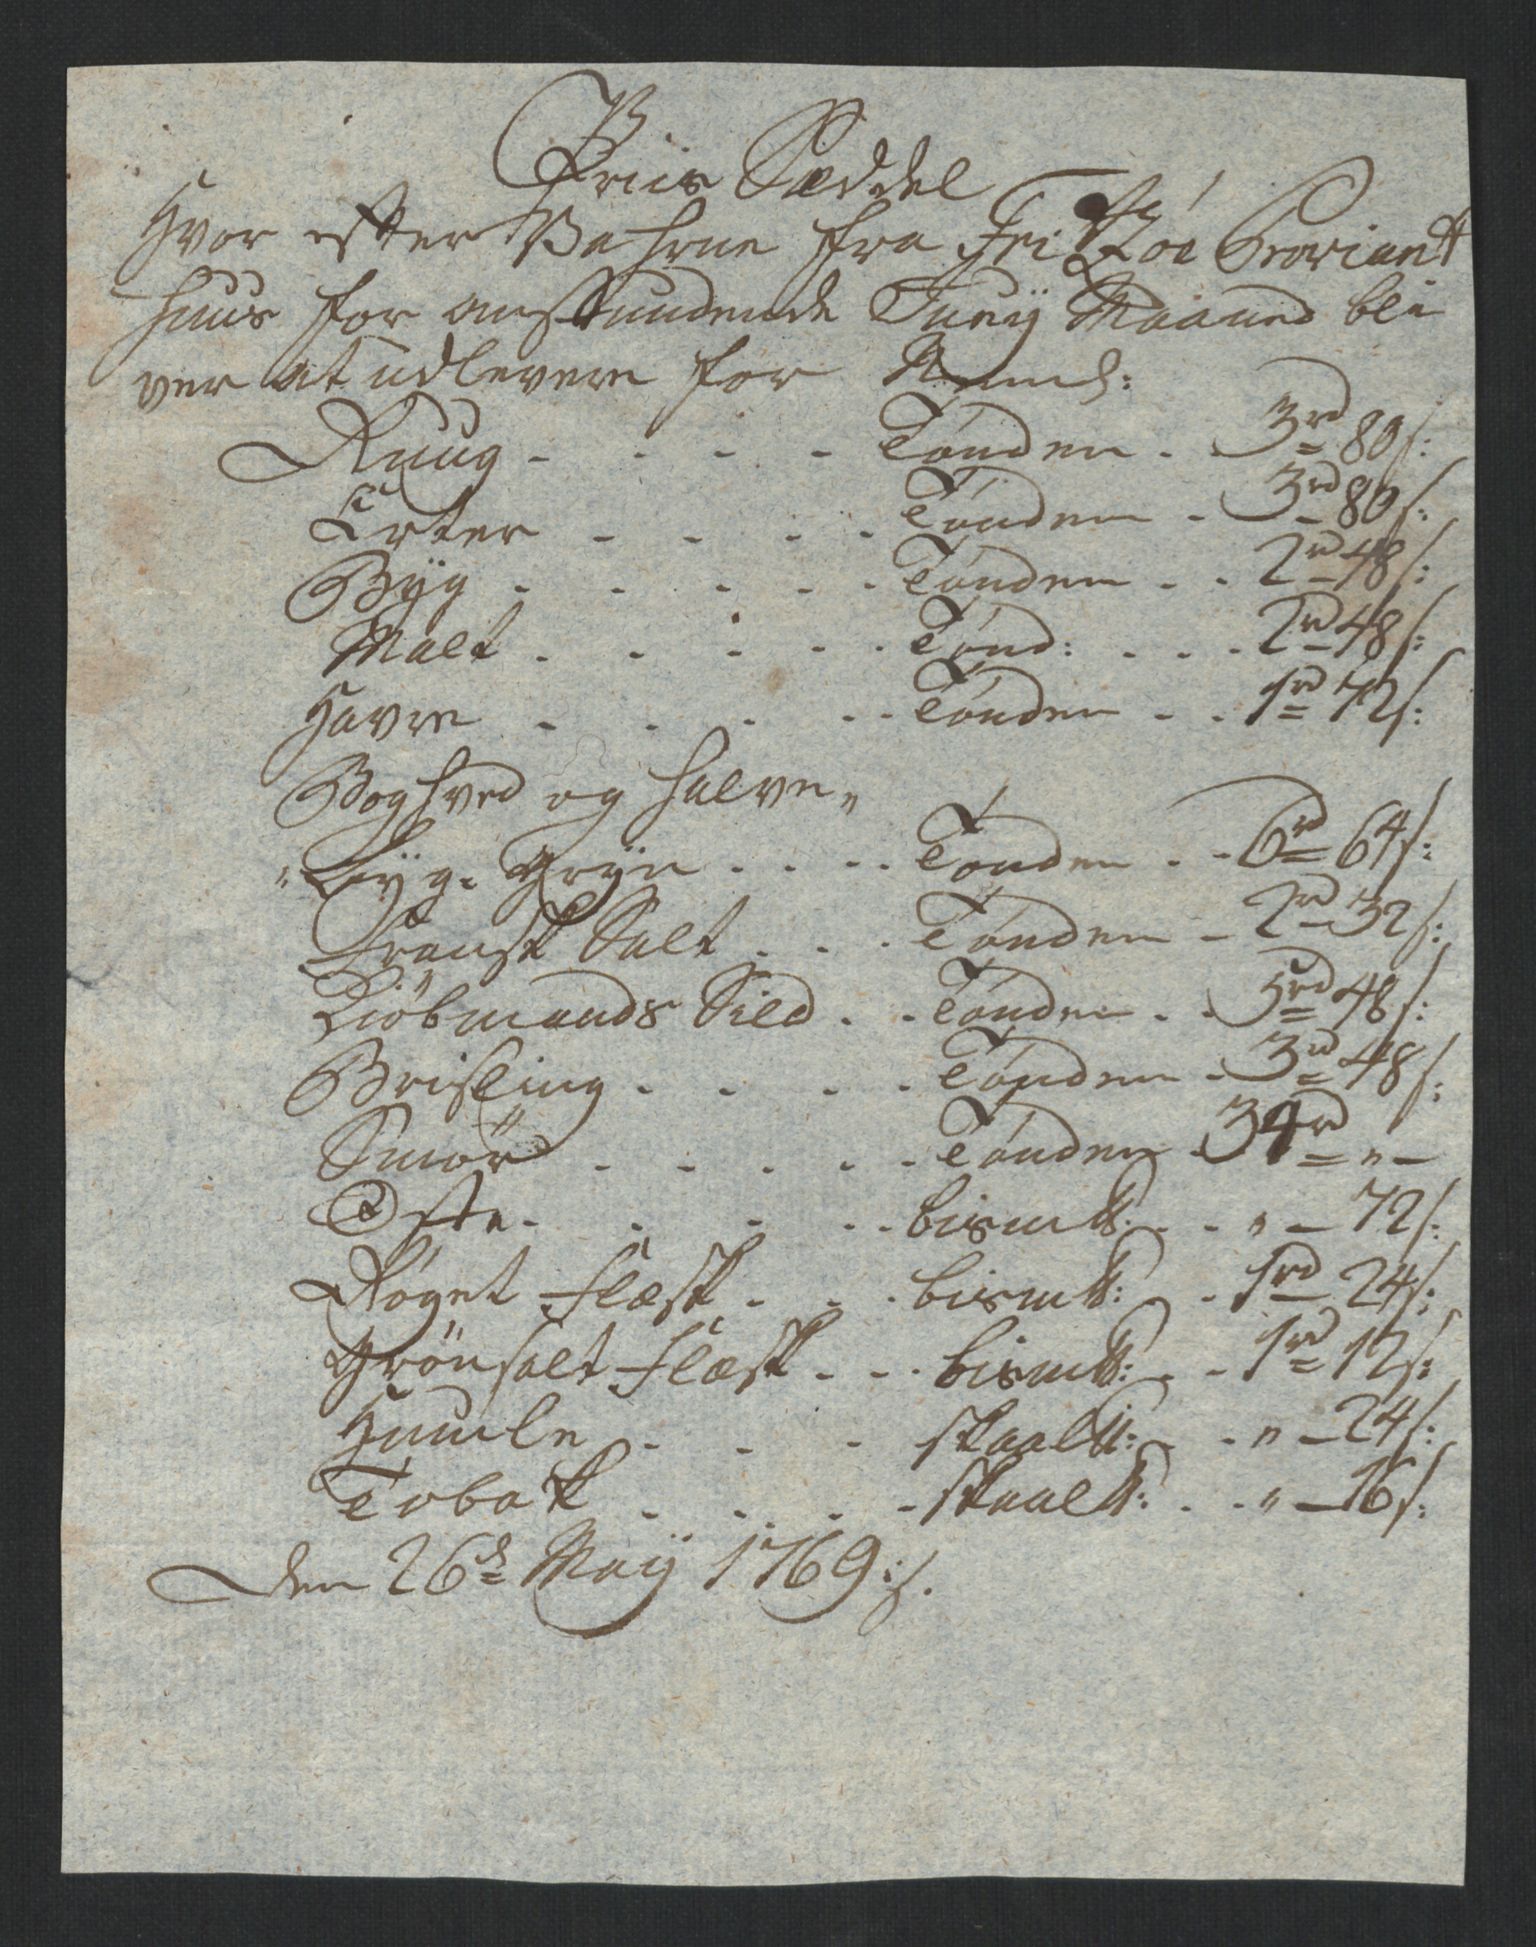 Priis Sæddel
Hvor efter Vahrne fra Fri Zöe Proviant
Huus for anstundende Juny Maaned bli
ver at udlevere for Nemlig:
Ruug - - - - Tønden - 3rd 80s:
Erter - - - - Tønden - 3rd 80s:
Byg - - - - - Tønden - - 2rd 48s:
Malt - - - - - Tønd: - - - 2rd 48s:
Havre - - - - - Tønden - - 1rd 72s:
Boghved og halve„
„Byg: Gryn - - - - Tønden - - 6rd 64s:
Fransk Salt - - - Tønden - 2rd 32s:
Kiöbmands Sild - - Tønden - - 5rd 48s:
Brisling - - - - Tønden - 3rd 48s:
Smör - - - - - Tønden 34rd „ -
Oste - - - - - bism℔: - - „ - 72s:
Røget Flæsk - - - bism℔: - - 1rd 24s:
Grönsalt Flæsk - - - bism℔: - - 1rd 12s:
Humle - - - skaal℔: - - „ - 24s:
Tobak - - - - skaal℔: - - „ - 16s:
Den 26d Maij 1769:/.